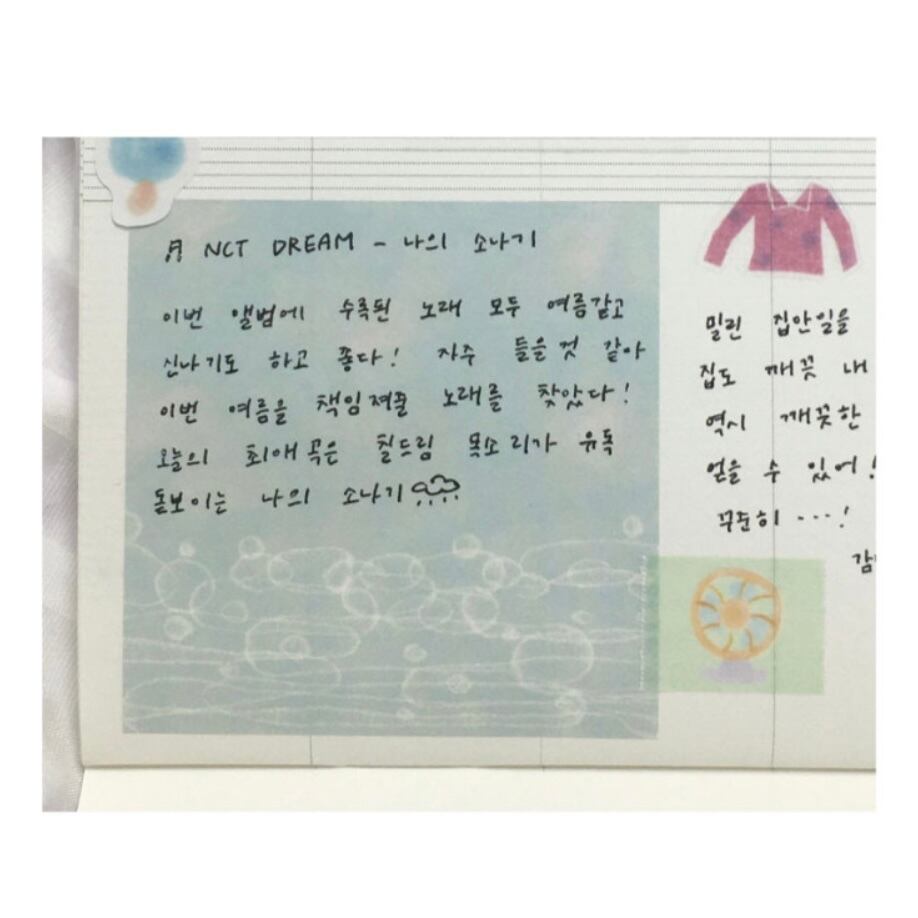 ♬ NCT DREAM - 나의 소나기
이번 앨범에 수록된 노래 모두 여름같고
신나기도 하고 좋다! 자주 들을것 같아
이번 여름을 책임져줄 노래를 찾았다!
오늘의 최애곡은 칠드림 목소리가 유독
돋보이는 나의 소나기
밀린 집안일을
집도 깨끗 내
역시 깨끗한
얻을 수 있어!
꾸준히 ···!